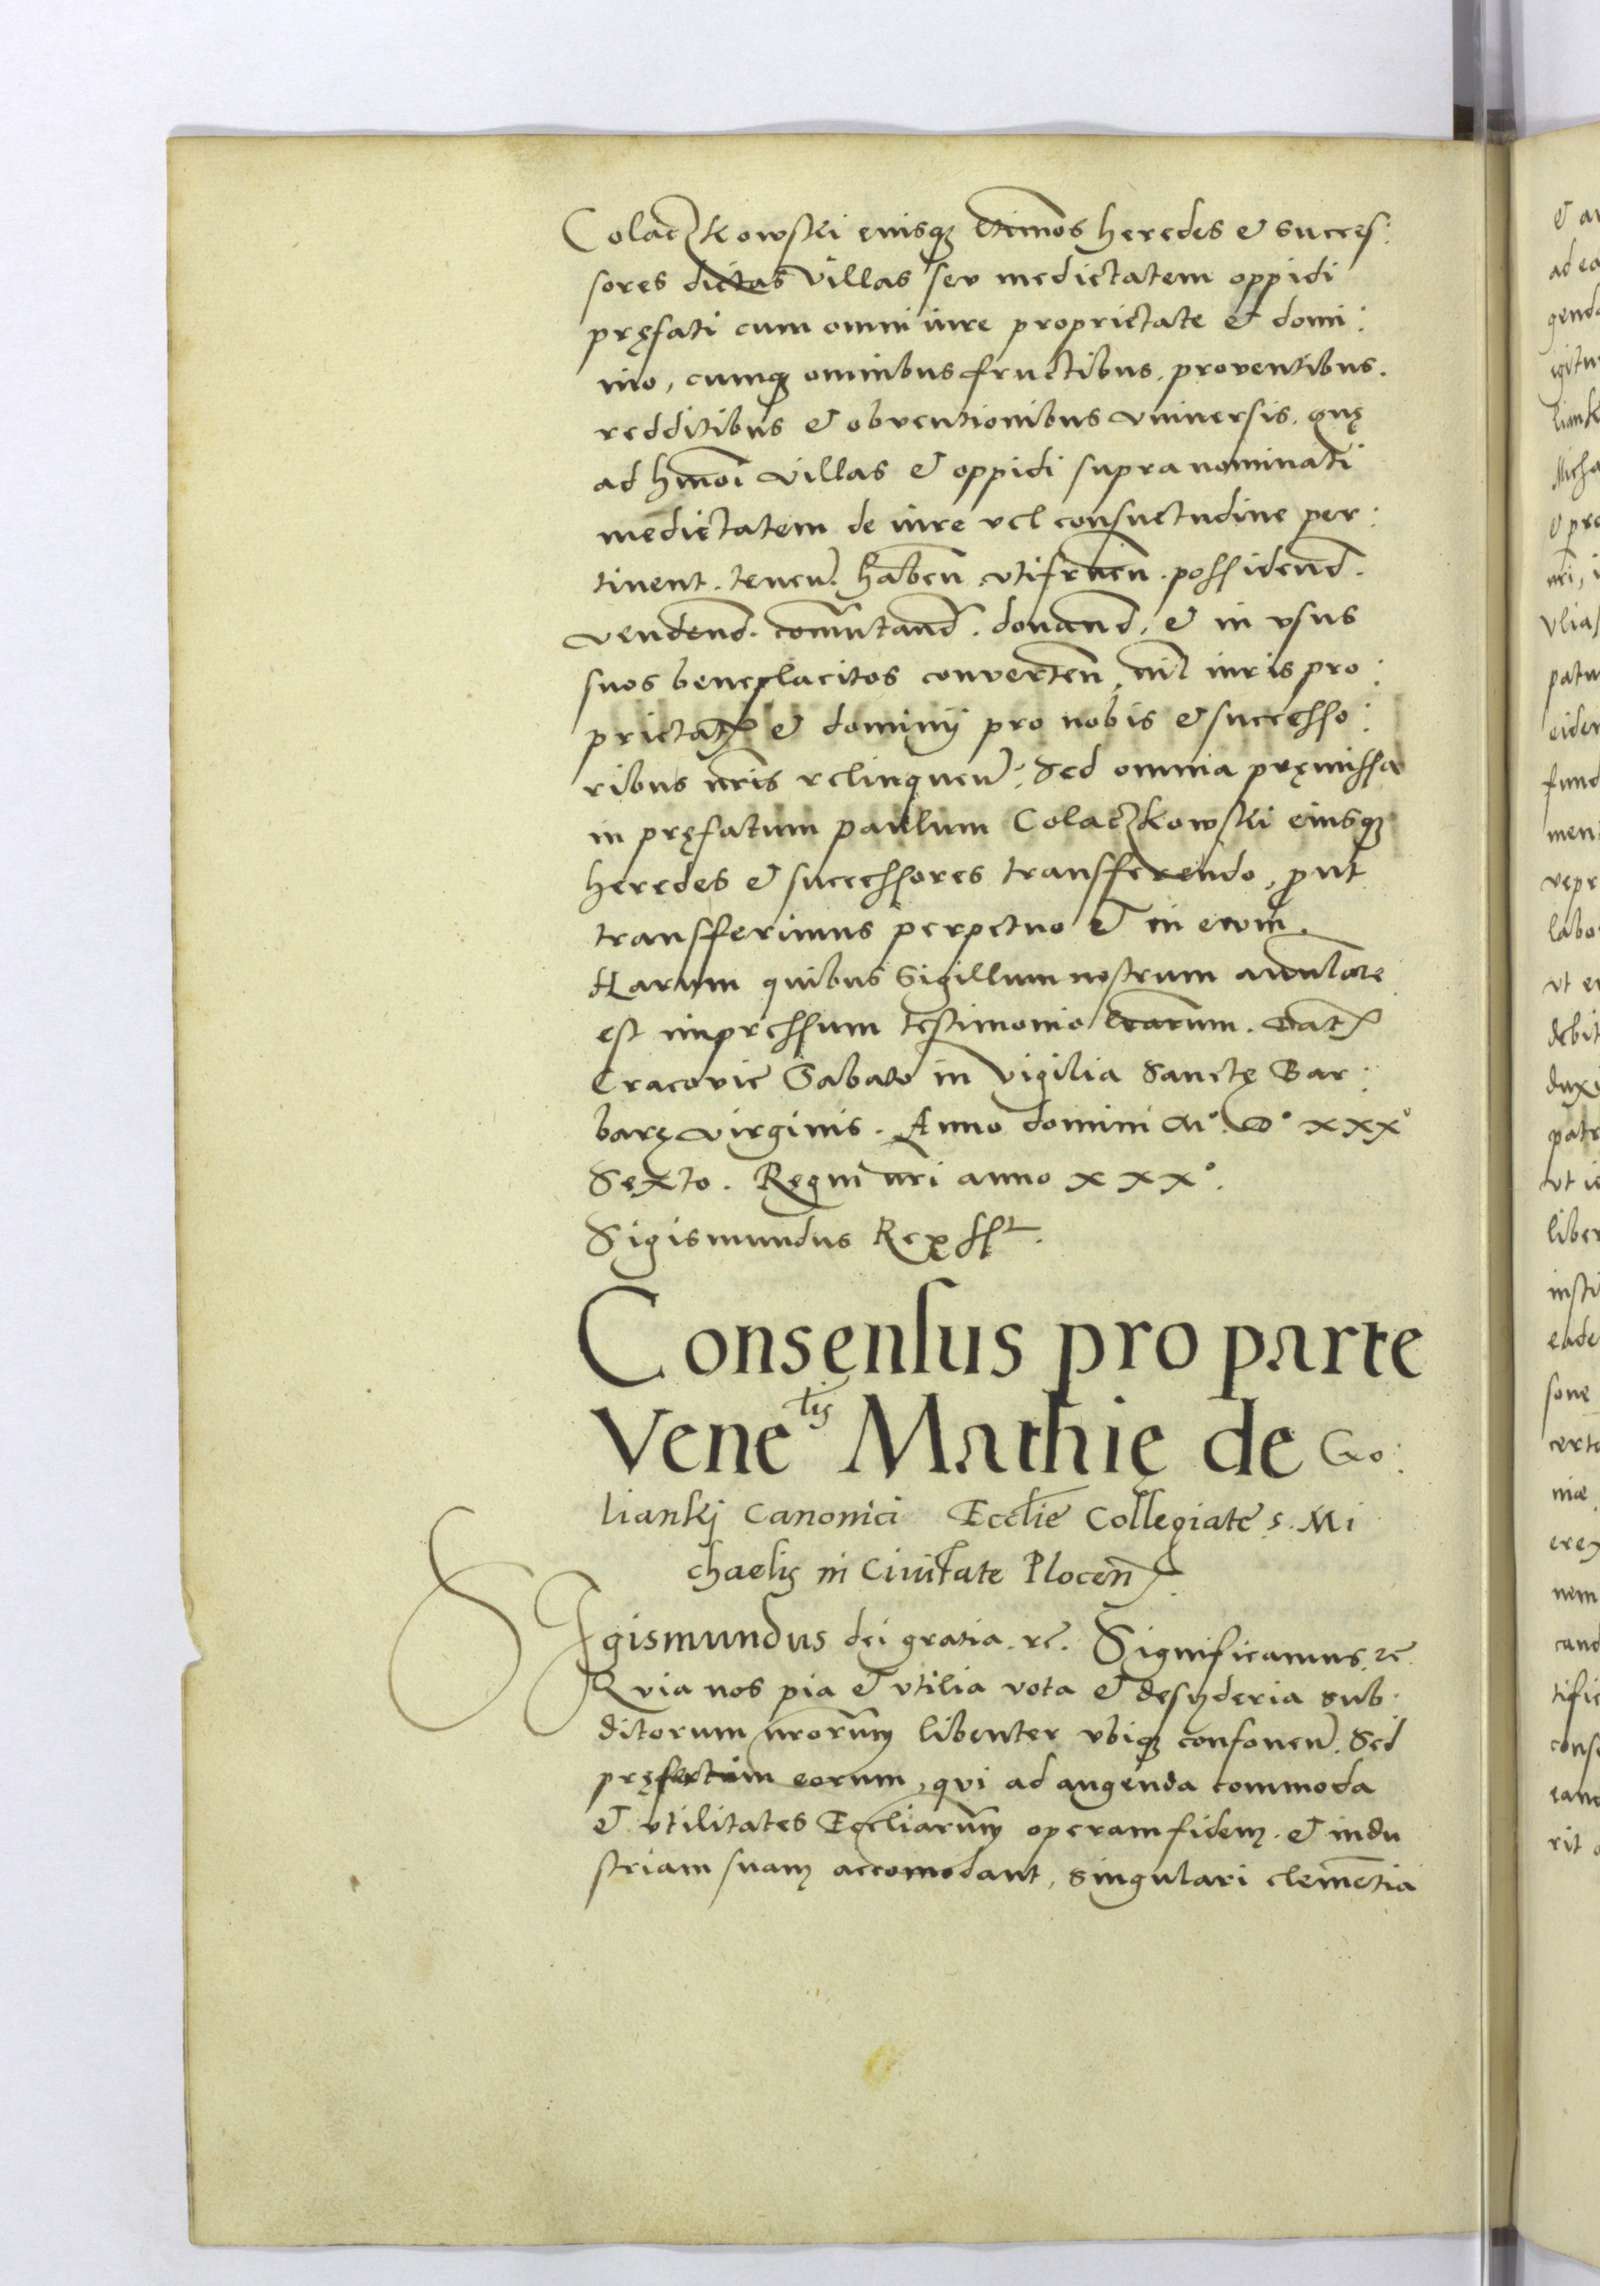 Colaczkowski eiusqȝ ltimos heredes et succes:
sores dictas villas seu medietatem oppidi
pręfati cum omni iure proprietate et domi:
nio, cumqȝ omnibus fructibus. proventibus.
redditibus et obventionibus vniversis. quę
ad hmoi villas et oppidi supra nominati
medietatem de iure vel consuetudine per:
tinent. tenen. haben. vtifruen. possidend.
vendend. comutand. donand. et in vsus
suos beneplacitos converten, nil iuris pro:
prietatis et dominij pro nobis et successo:
ribus nris relinquen: Sed omnia pręmissa
in pręfatum paulum Colaczkowski eiusqȝ
heredes et successores transfferendo, prout
transfferimus perpetuo et in ewm.
Harum quibus Sigillum nostrum
est impressum testimonio lrarum. Dat
Cracovie Sabato in Vigilia Sanctę Bar:
barę virginis. Anno domini M° D° xxx°
Sexto. Regni nri anno xxx°.
Sigismundus Rex sst.
Consensus pro parte
Venelis Mathię de Go:
lianki Canonici Ecclie Collegiate S. Mi
chaelis in Civitate Plocen.
SIgismundus dei gratia. rc. Significamus. rc
Quia nos pia et vtilia vota et desyderia sub:
ditorum nrorum libenter vbiqȝ confouen. Sed
pręsertim eorum, qui ad augenda commoda
et vtilitates Eccliarum operam fidem. et indu
striam suam accomodant, singulari clementia